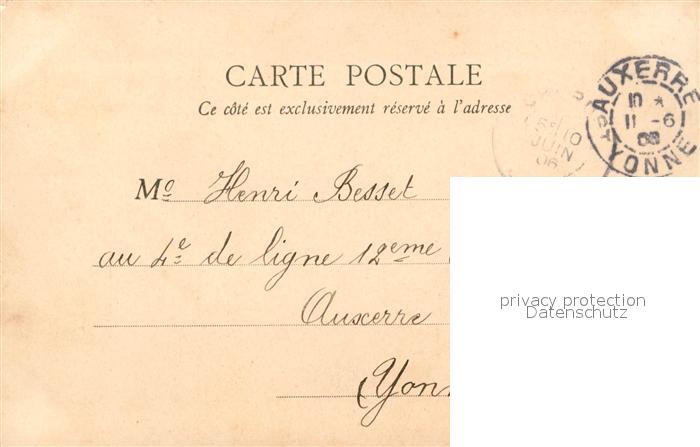 CARTE POSTALE
Ce côté est exclusivement réservé à l'adresse
AUXERRE
YONNE
11 -6
10
JUIN
06
Mo Henri Besset
au 4e de ligne 12eme
Auxerre
Yon
privacy protection
Datenschutz